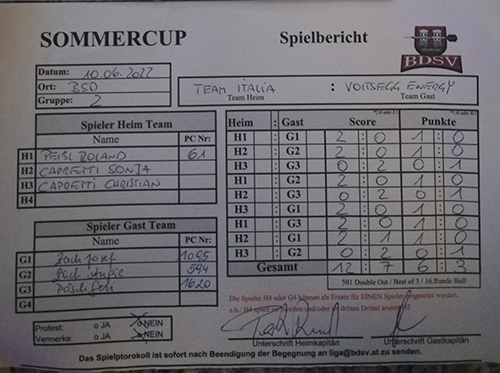 SOMMERCUP Spielbericht BDSV
Datum: 10.06.2022
Ort: BSD
Gruppe: 2
TEAM ITALIA : VOITSEGG ENERGY
Team Heim Team Gast
Spieler Heim Team
Name PC Nr:
H1 PEIBL ROLAND 61
H2 CAPRETTI SONJA
H3 CAPRETTI CHRISTIAN
H4
Spieler Gast Team
Name PC Nr:
G1 Zach Josef 1095
G2 594
G3 1620
G4
Heim Gast Score Punkte
H1 G1 2 0 1 0
H2 G2 2 0 1 0
H3 G3 0 2 0 1
H1 G2 2 0 1 0
H2 G3 0 2 0 1
H3 G1 2 0 1 0
H1 G3 2 0 1 0
H2 G1 2 1 1 0
H3 G2 0 2 0 1
Gesamt 12 7 6 3
501 Double Out / Best of 3 / 16.Runde Bull
Die Spieler H4 oder G4 können als Ersatz für EINEN Spieler eingesetzt werden.
Protest: o JA o NEIN
Vermerke: o JA o NEIN
Unterschrift Heimkapitän Unterschrift Gastkapitän
Das Spielprotokoll ist sofort nach Beendigung der Begegnung an liga@bdsv.at zu senden.